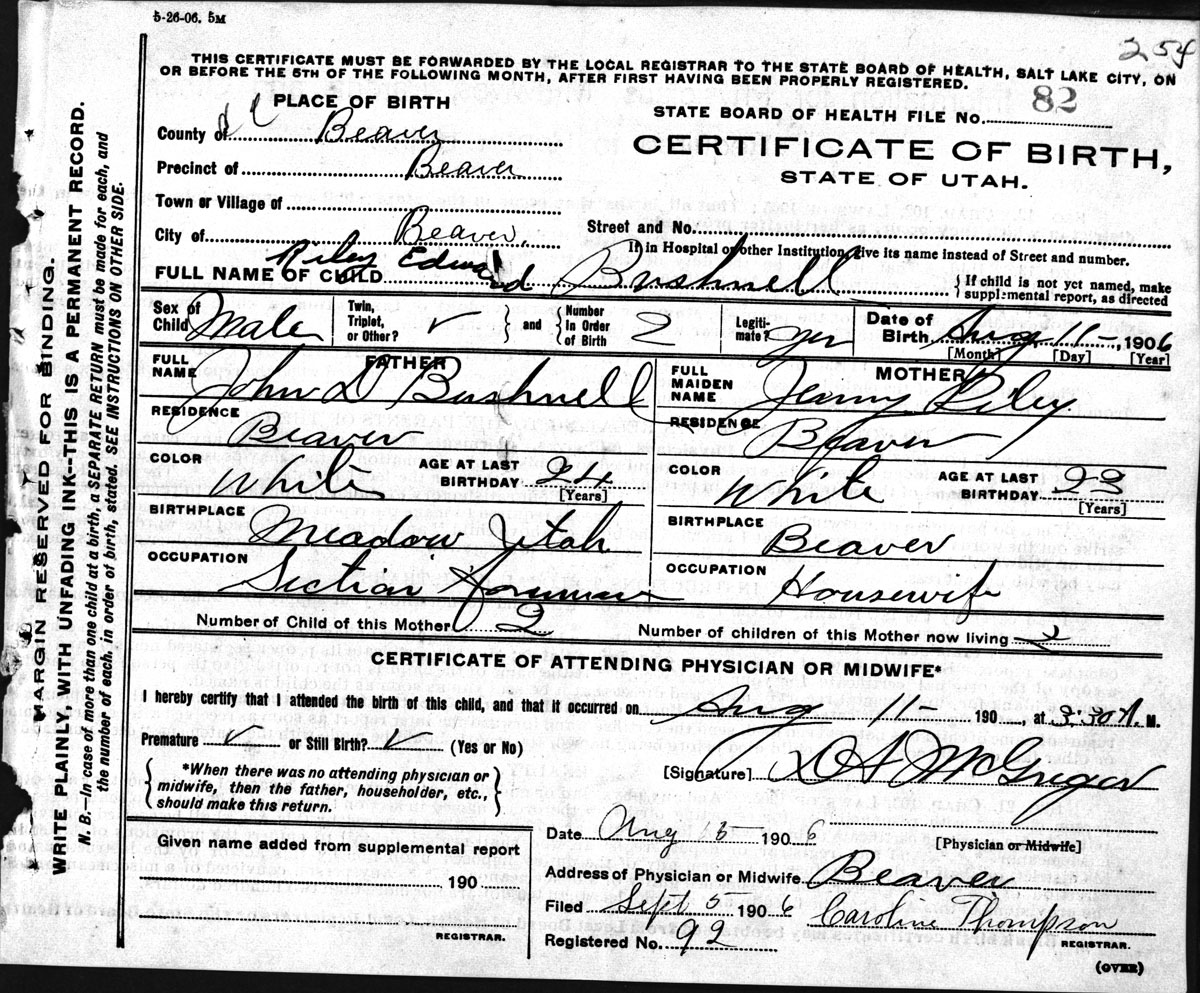 5-26-06. 5M
254
THIS CERTIFICATE MUST BE FORWARDED BY THE LOCAL REGISTRAR TO THE STATE BOARD OF HEALTH, SALT LAKE CITY, ON
OR BEFORE THE 5TH OF THE FOLLOWING MONTH, AFTER FIRST HAVING BEEN PROPERLY REGISTERED.
PLACE OF BIRTH
STATE BOARD OF HEALTH FILE No. 82
County of Beaver
CERTIFICATE OF BIRTH,
STATE OF UTAH.
Precinct of Beaver
Town or Village of
City of Beaver,
Street and No.
If in Hospital or other Institution, give its name instead of Street and number.
FULL NAME OF CHILD Riley Edward Bushnell
} If child is not yet named, make
supplemental report, as directed
Sex of Child Male
Twin, Triplet, or Other? ✓ } and { Number In Order of Birth 2
Legiti-mate? yes
Date of Birth Aug 11-, 1906
[Month] [Day] [Year]
FATHER
FULL NAME John D Bushnell
RESIDENCE Beaver
COLOR White
AGE AT LAST BIRTHDAY 24
[Years]
BIRTHPLACE Meadow Utah
OCCUPATION Section Foreman
MOTHER
FULL MAIDEN NAME Jenny Riley
RESIDENCE Beaver
COLOR White
AGE AT LAST BIRTHDAY 23
[Years]
BIRTHPLACE Beaver
OCCUPATION Housewife
Number of Child of this Mother 2
Number of children of this Mother now living 2
CERTIFICATE OF ATTENDING PHYSICIAN OR MIDWIFE*
I hereby certify that I attended the birth of this child, and that it occurred on Aug 11- 190, at 3.30 A. M.
Premature ✓ or Still Birth? ✓ (Yes or No)
{ *When there was no attending physician or
midwife, then the father, householder, etc.,
should make this return. }
[Signature] D A McGregor
Date Aug 15 1906
[Physician or Midwife]
Given name added from supplemental report
190
REGISTRAR.
Address of Physician or Midwife Beaver
Filed Sept 5 1906 Caroline Thompson
Registered No. 92
REGISTRAR.
(OVER)
MARGIN RESERVED FOR BINDING.
WRITE PLAINLY, WITH UNFADING INK--THIS IS A PERMANENT RECORD.
N. B.—In case of more than one child at a birth, a SEPARATE RETURN must be made for each, and
the number of each, in order of birth, stated. SEE INSTRUCTIONS ON OTHER SIDE.